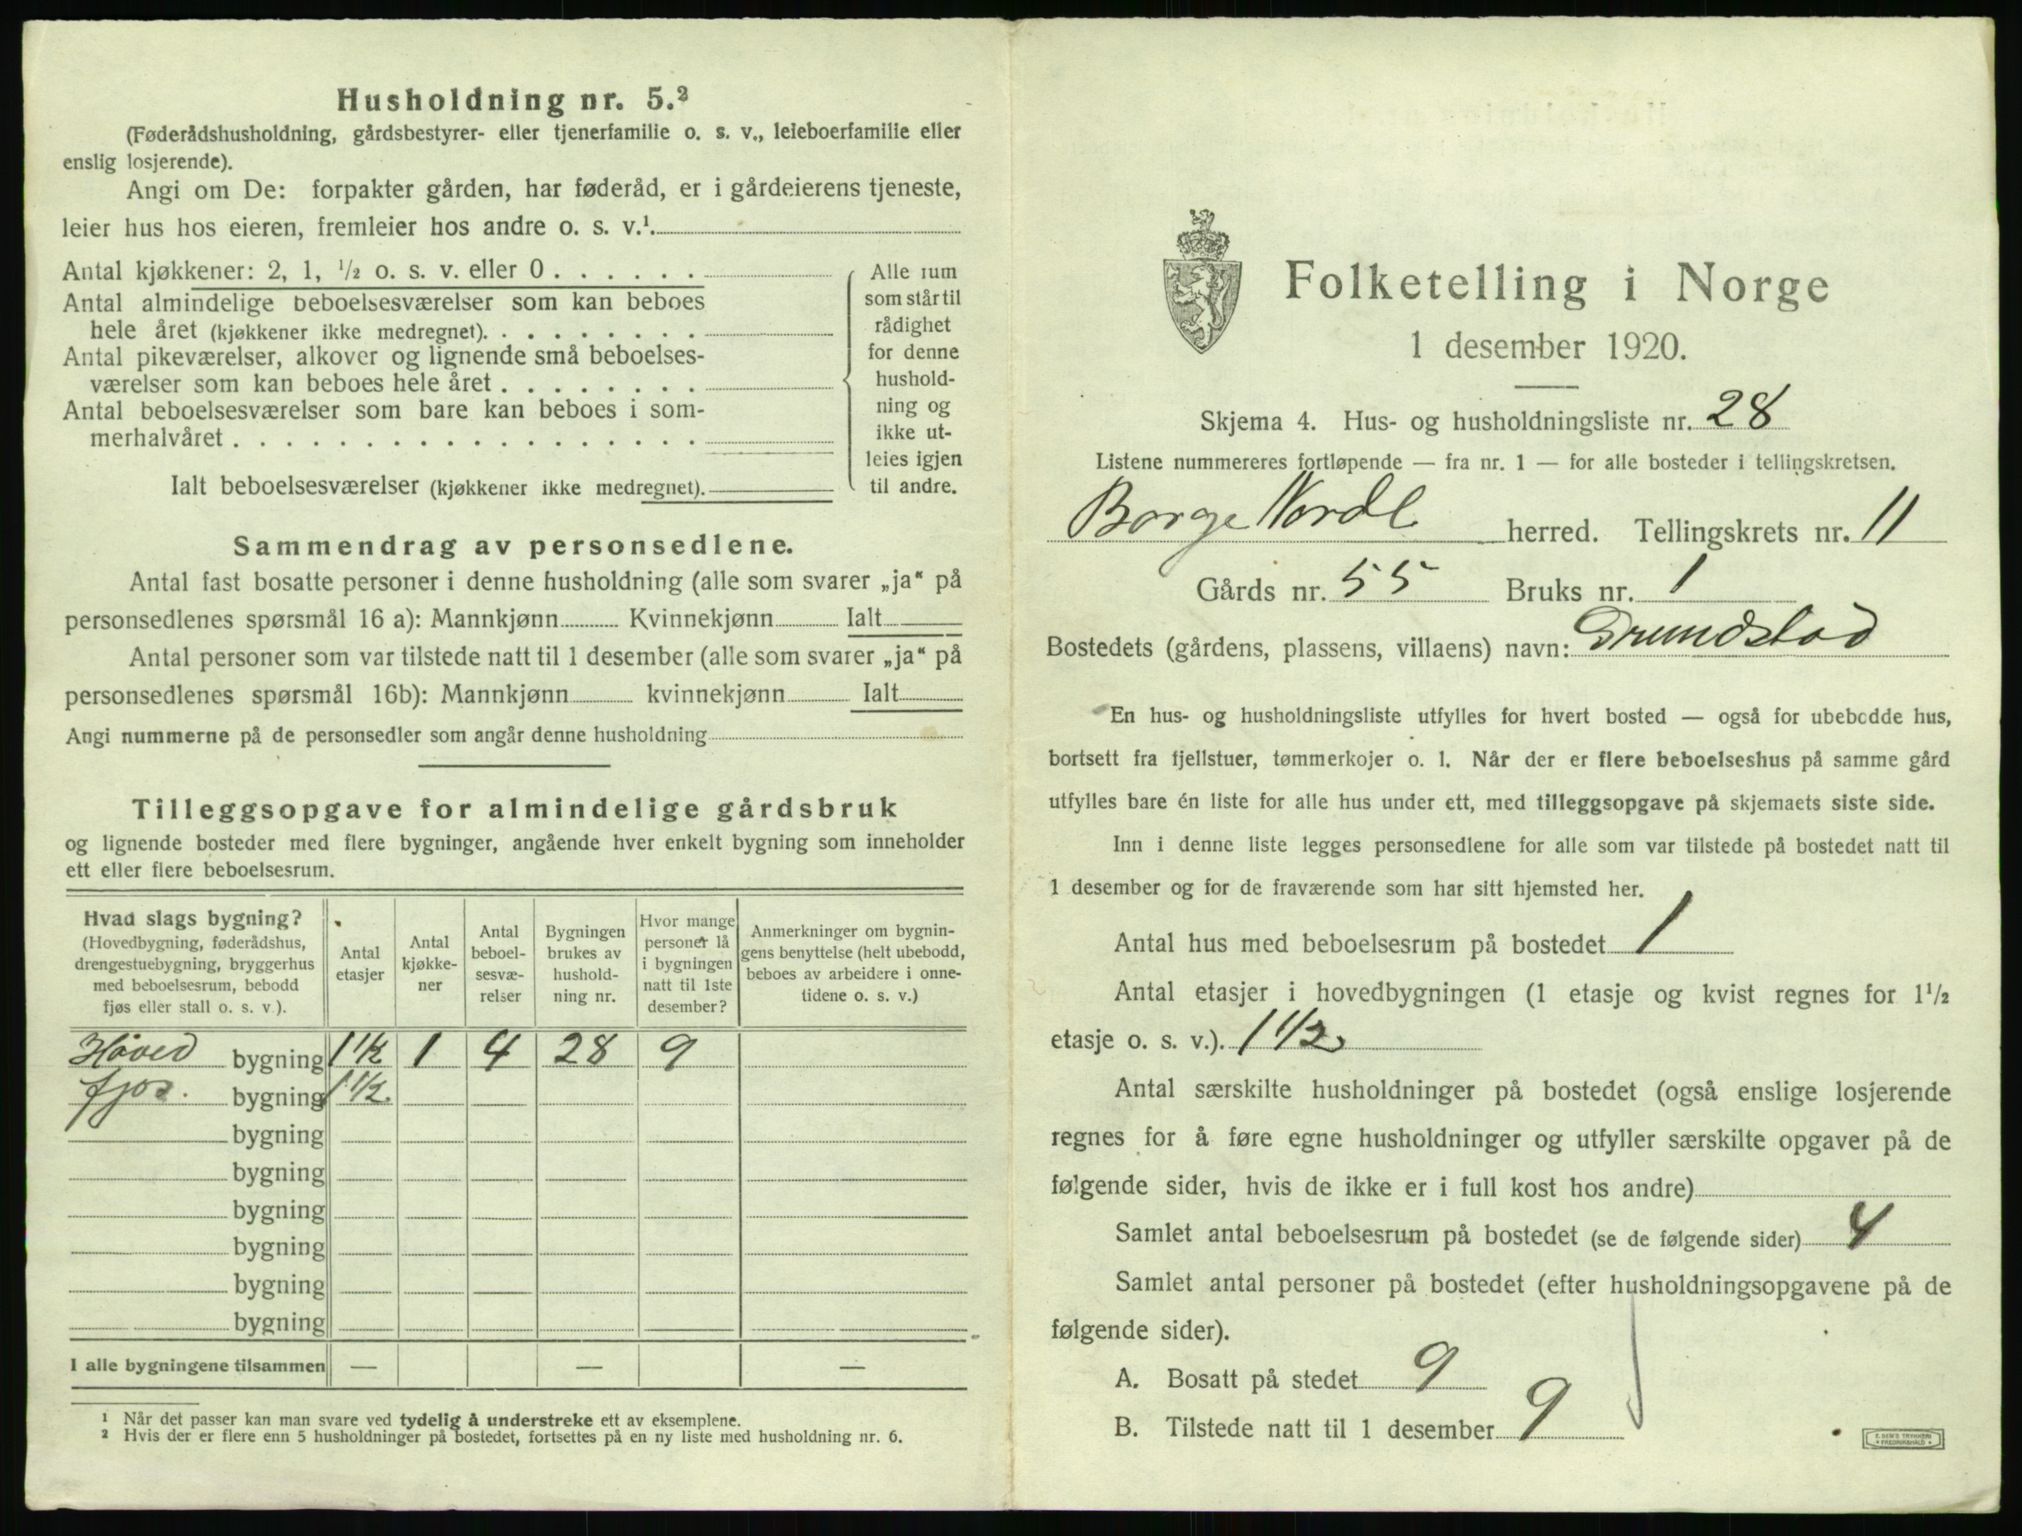 Husholdning nr. 5.²
(Føderådshusholdning, gårdsbestyrer- eller tjenerfamilie o. s. v., leieboerfamilie eller
enslig losjerende).
Angi om De: forpakter gården, har føderåd, er i gårdeierens tjeneste,
leier hus hos eieren, fremleier hos andre o. s. v.¹.
Antal kjøkkener: 2, 1, ½ o. s. v. eller 0 . . . . . .
Antal almindelige beboelsesværelser som kan beboes
hele året (kjøkkener ikke medregnet). . . . . . . . .
Antal pikeværelser, alkover og lignende små beboelses-
værelser som kan beboes hele året . . . . . . . .
Antal beboelsesværelser som bare kan beboes i som-
merhalvåret . . . . . . . . . . . . . . . . . .
Ialt beboelsesværelser (kjøkkener ikke medregnet).
Alle rum
som står til
rådighet
for denne
hushold-
ning og
ikke ut-
leies igjen
til andre.
Sammendrag av personsedlene.
Antal fast bosatte personer i denne husholdning (alle som svarer „ja“ på
personsedlenes spørsmål 16 a): Mannkjønn Kvinnekjønn Ialt
Antal personer som var tilstede natt til 1 desember (alle som svarer „ja“ på
personsedlenes spørsmål 16b): Mannkjønn kvinnekjønn Ialt
Angi nummerne på de personsedler som angår denne husholdning
Tilleggsopgave for almindelige gårdsbruk
og lignende bosteder med flere bygninger, angående hver enkelt bygning som inneholder
ett eller flere beboelsesrum.
Hvad slags bygning?
(Hovedbygning, føderådshus,
drengestuebygning, bryggerhus
med beboelsesrum, bebodd
fjøs eller stall o. s. v.).
Antal
etasjer
Antal
kjøkke-
ner
Antal
beboel-
sesvæ-
relser
Bygningen
brukes av
hushold-
ning nr.
Hvor mange
personer lå
i bygningen
natt til 1ste
desember?
Anmerkninger om bygnin-
gens benyttelse (helt ubebodd,
beboes av arbeidere i onne-
tidene o. s. v.)
Hoved bygning 1½ 1 4 28 9
fjøs. bygning 1½.
bygning
bygning
bygning
bygning
bygning
bygning
I alle bygningene tilsammen — — —
¹ Når det passer kan man svare ved tydelig å understreke ett av eksemplene.
² Hvis der er flere enn 5 husholdninger på bostedet, fortsettes på en ny liste med husholdning nr. 6.
Folketelling i Norge
1 desember 1920.
Skjema 4. Hus- og husholdningsliste nr. 28
Listene nummereres fortløpende — fra nr. 1 — for alle bosteder i tellingskretsen.
Borge Nordl herred. Tellingskrets nr. 11
Gårds nr. 55 Bruks nr. 1
Bostedets (gårdens, plassens, villaens) navn: Grundstad
En hus- og husholdningsliste utfylles for hvert bosted — også for ubebodde hus,
bortsett fra fjellstuer, tømmerkojer o. l. Når der er flere beboelseshus på samme gård
utfylles bare én liste for alle hus under ett, med tilleggsopgave på skjemaets siste side.
Inn i denne liste legges personsedlene for alle som var tilstede på bostedet natt til
1 desember og for de fraværende som har sitt hjemsted her.
Antal hus med beboelsesrum på bostedet 1
Antal etasjer i hovedbygningen (1 etasje og kvist regnes for 1½
etasje o. s. v.). 1½
Antal særskilte husholdninger på bostedet (også enslige losjerende
regnes for å føre egne husholdninger og utfyller særskilte opgaver på de
følgende sider, hvis de ikke er i full kost hos andre)
Samlet antal beboelsesrum på bostedet (se de følgende sider) 4
Samlet antal personer på bostedet (efter husholdningsopgavene på de
følgende sider).
A. Bosatt på stedet 9
B. Tilstede natt til 1 desember 9